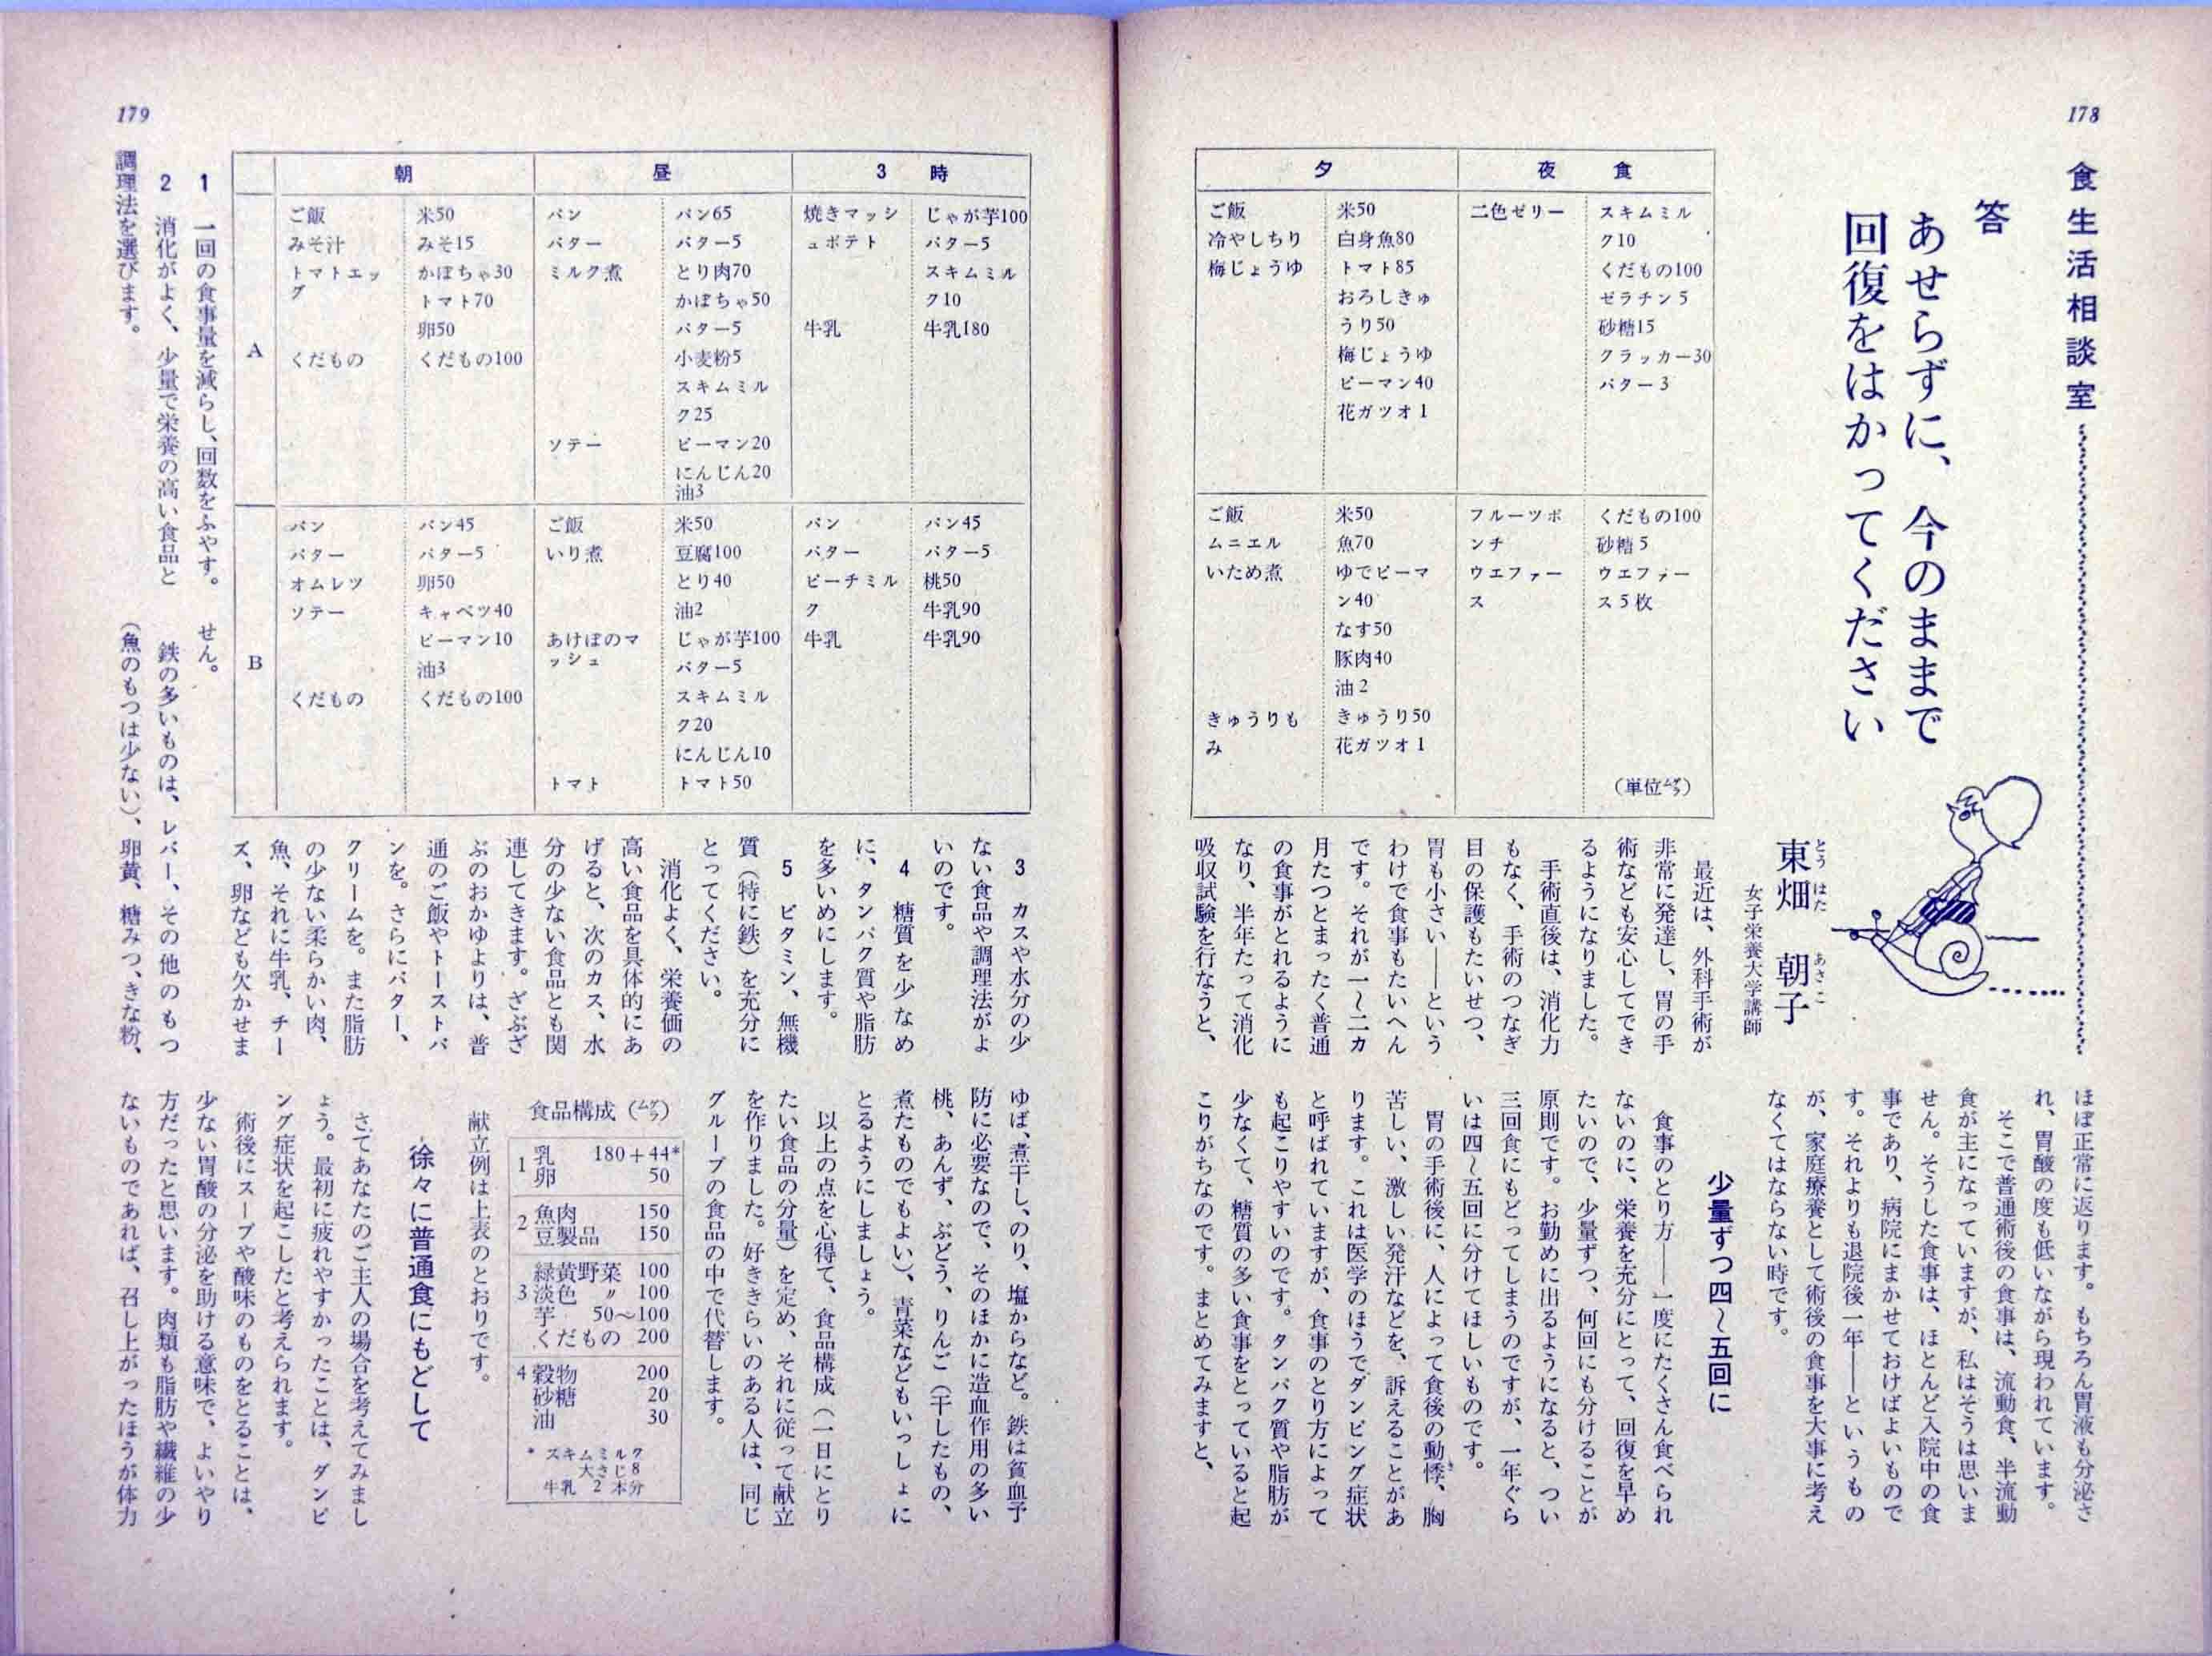 178
食生活相談室
答
あせらずに、今のままで
回復をはかってください
東畑 朝子
とう はた あさ こ
女子栄養大学講師
最近は、外科手術が
非常に発達し、胃の手
術なども安心してでき
るようになりました。
手術直後は、消化力
もなく、手術のつなぎ
目の保護もたいせつ、
胃も小さい――という
わけで食事もたいへん
です。それが一～二カ
月たつとまったく普通
の食事がとれるように
なり、半年たって消化
吸収試験を行なうと、
ほぼ正常に返ります。もちろん胃液も分泌さ
れ、胃酸の度も低いながら現われています。
そこで普通術後の食事は、流動食、半流動
食が主になっていますが、私はそうは思いま
せん。そうした食事は、ほとんど入院中の食
事であり、病院にまかせておけばよいもので
す。それよりも退院後一年――というもの
が、家庭療養として術後の食事を大事に考え
なくてはならない時です。
少量ずつ四～五回に
食事のとり方――一度にたくさん食べられ
ないのに、栄養を充分にとって、回復を早め
たいので、少量ずつ、何回にも分けることが
原則です。お勤めに出るようになると、つい
三回食にもどってしまうのですが、一年ぐら
いは四～五回に分けてほしいものです。
胃の手術後に、人によって食後の動悸、胸
き
苦しい、激しい発汗などを、訴えることがあ
ります。これは医学のほうでダンピング症状
と呼ばれていますが、食事のとり方によって
も起こりやすいのです。タンパク質や脂肪が
少なくて、糖質の多い食事をとっていると起
こりがちなのです。まとめてみますと、
夕
夜食
ご飯 米50 二色ゼリー スキムミル
冷やしちり 白身魚80 ク10
梅じょうゆ トマト85 くだもの100
おろしきゅ ゼラチン5
うり50 砂糖15
梅じょうゆ クラッカー30
ピーマン40 バター3
花ガツオ1
ご飯 米50 フルーツポ くだもの100
ムニエル 魚70 ンチ 砂糖5
いため煮 ゆでピーマ ウエファー ウエファー
ン40 ス ス5枚
なす50
豚肉40
油2
きゅうりも きゅうり50
み 花ガツオ1
(単位㌘)
179
朝 昼 3時
A
ご飯 米50 パン パン65 焼きマッシ じゃが芋100
みそ汁 みそ15 バター バター5 ュポテト バター5
トマトエッ かぼちゃ30 ミルク煮 とり肉70 スキムミル
グ トマト70 かぼちゃ50 ク10
卵50 バター5 牛乳 牛乳180
くだもの くだもの100 小麦粉5
スキムミル
ク25
ソテー ピーマン20
にんじん20
油3
B
パン パン45 ご飯 米50 パン パン45
バター バター5 いり煮 豆腐100 バター バター5
オムレツ 卵50 とり40 ピーチミル 桃50
ソテー キャベツ40 油2 ク 牛乳90
ピーマン10 あけぼのマ じゃが芋100 牛乳 牛乳90
油3 ッシュ バター5
くだもの くだもの100 スキムミル
ク20
にんじん10
トマト トマト50
1 一回の食事量を減らし、回数をふやす。
2 消化がよく、少量で栄養の高い食品と
調理法を選びます。
3 カスや水分の少
ない食品や調理法がよ
いのです。
4 糖質を少なめ
に、タンパク質や脂肪
を多いめにします。
5 ビタミン、無機
質(特に鉄)を充分に
とってください。
消化よく、栄養価の
高い食品を具体的にあ
げると、次のカス、水
分の少ない食品とも関
連してきます。ざぶざ
ぶのおかゆよりは、普
通のご飯やトーストパ
ンを。さらにバター、
クリームを。また脂肪
の少ない柔らかい肉、
魚、それに牛乳、チー
ズ、卵なども欠かせま
せん。
鉄の多いものは、レバー、その他のもつ
(魚のもつは少ない)、卵黄、糖みつ、きな粉、
ゆば、煮干し、のり、塩からなど。鉄は貧血予
防に必要なので、そのほかに造血作用の多い
桃、あんず、ぶどう、りんご(干したもの、
煮たものでもよい)、青菜などもいっしょに
とるようにしましょう。
以上の点を心得て、食品構成(一日にとり
たい食品の分量)を定め、それに従って献立
を作りました。好ききらいのある人は、同じ
グループの食品の中で代替します。
食品構成(㌘)
1 乳 180+44*
卵 50
2 魚肉 150
豆製品 150
緑黄野菜 100
3 淡色 〃 100
芋 50～100
くだもの 200
4 穀物 200
砂糖 20
油 30
* スキムミルク
大さじ8
牛乳 2本分
献立例は上表のとおりです。
徐々に普通食にもどして
さてあなたのご主人の場合を考えてみまし
ょう。最初に疲れやすかったことは、ダンピ
ング症状を起こしたと考えられます。
術後にスープや酸味のものをとることは、
少ない胃酸の分泌を助ける意味で、よいやり
方だったと思います。肉類も脂肪や繊維の少
ないものであれば、召し上がったほうが体力